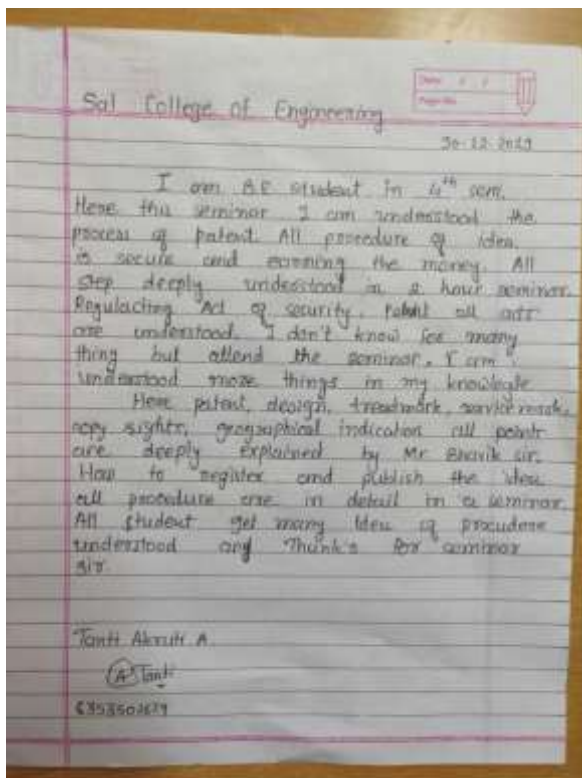 Date / /
Page No.
Sal College of Engineering
30-12-2023
I am B.E student in 4th sem.
Here this seminar I am understood the
process of patent. All procedure of idea
is secure and earning the money. All
step deeply understood in 2 hour seminar.
Regulacting Act of security, Patent all
are understood. I don't know many
thing but attend the seminar, I am
understood more things in my knowlegde
Here patent, design, treadmark, service mark,
copy rights, geographical indication all points
are deeply explained by Mr Bhavik sir.
How to register and publish the idea
all procedure are in detail in a seminar.
All student get many Idea of procudere
understood and Thank's for seminar
sir.
Tanti A.
A Tanti